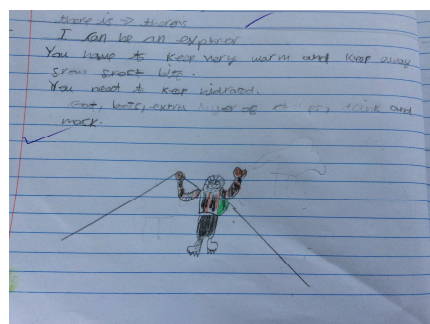 I can be an explorer
You have to keep very warm and keep away
from frost bite.
You need to keep hidrated.
extra layer of and
mask.